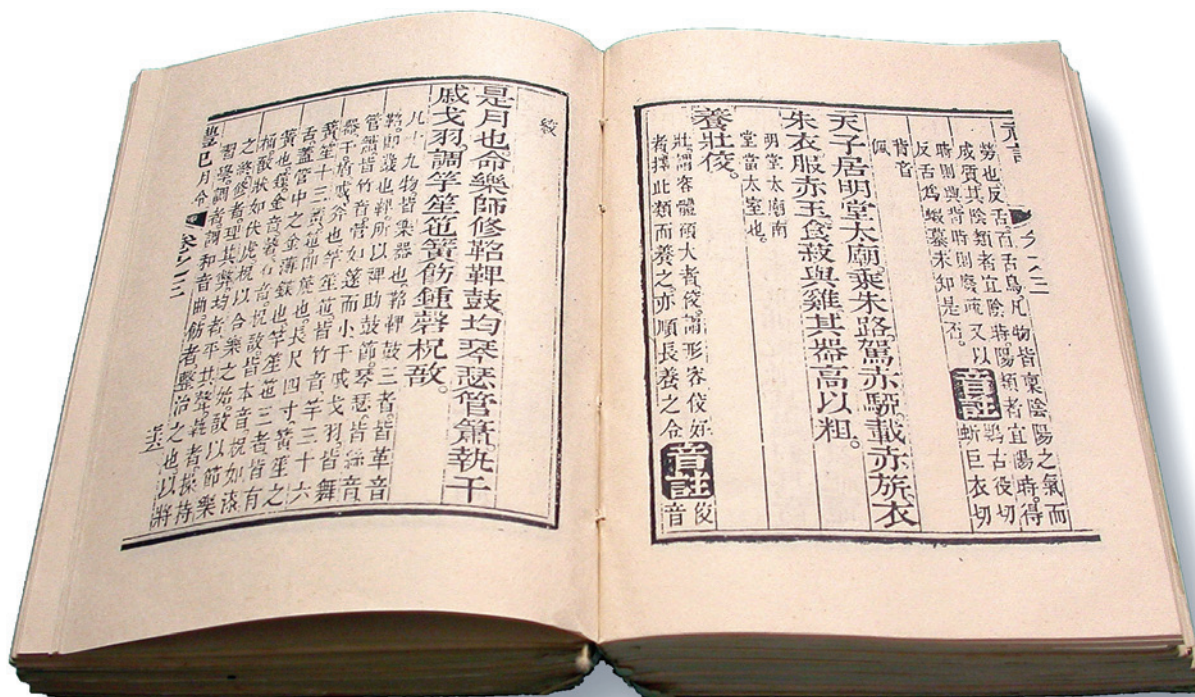 勞也反舌百舌鳥凡物皆稟陰陽之氣而
成質其陰類者宜陰時陽類者宜陽時得
時則與背時則廢疏又以
反舌爲蝦蟇未知是否。
音註
鵙古役切
蜥巨衣切
背音
佩
天子居明堂太廟。乘朱路駕赤駵。載赤旂。衣
朱衣服赤玉。食菽與雞。其器高以粗。
明堂太廟南
堂當太室也。
養壯佼。
壯謂容體碩大者佼謂形容佼好
者擇此類而養之亦順長養之令
音註
佼
音
絞
是月也。命樂師修鞀鞞鼓。均琴瑟管簫。執干
戚戈羽。調竽笙竾簧。飭鍾磬柷敔。
凡十九物。皆樂器也。鞀鞞鼓三者。皆革音
鞀。即鼗也。鞞所以裨助鼓節。琴瑟。皆絲音
管簫皆竹音。管如篴而小。干戚戈羽。皆舞
器。干盾。戚斧也。竽笙竾。皆竹音。竽三十六
簧。笙十三簧。竾即篪也。長尺四寸。簧笙之
舌。蓋管中之金薄鐷也。竽笙竾三者皆有
簧也。鍾金音。磬石音。柷敔。皆木音。柷如漆
桶。敔狀如伏虎。柷以合樂之始。敔以節樂
之終。修者理其弊。均者平其聲。執者操持
習學。調者調和音曲。飭者整治之也。以將
禮記月令 卷之三